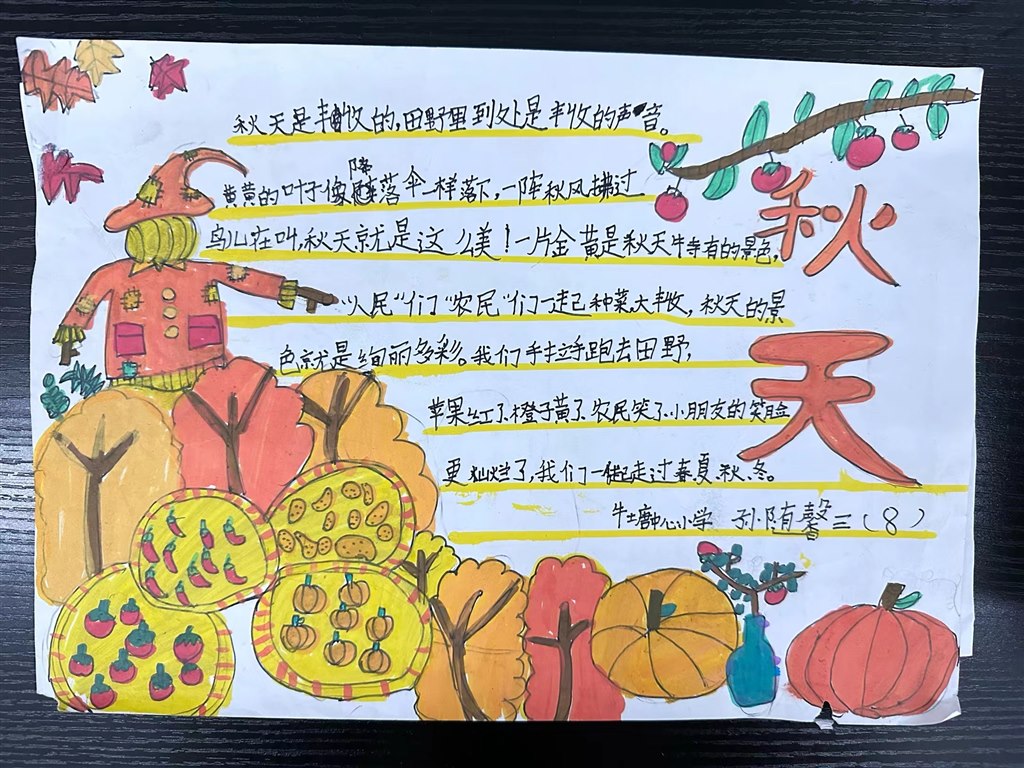 秋天是丰收的,田野里到处是丰收的声音。
黄黄的叶子像降落伞一样落下,一阵秋风拂过
鸟儿在叫,秋天就是这么美!一片金黄是秋天特有的景色,
"人民"们"农民"们一起种菜,大丰收,秋天的景
色就是绚丽多彩。我们手拉手跑去田野,
苹果红了橙子黄了农民笑了小朋友的笑脸
更灿烂了,我们一起走过春夏秋冬。
小学 孙随馨三(8)
秋
天